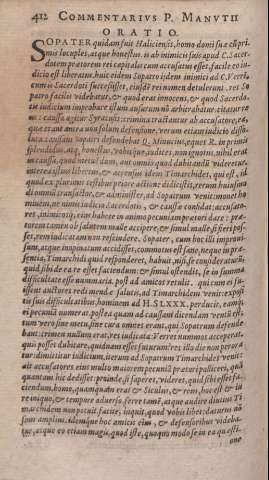 412 COMMENTARIUS P. MANUTII
ORATIO.
SOPATER quidam fuit Haliciensis, homo domi suæ cum pri-
mis locuples, atque honestus. is ab inimicis suis apud C. Sacer-
dotem prætorem rei capitalis cum accusatus esset, facile eo iu-
dicio est liberatus. huic eidem Sopatro iidem inimici ad C. Verrē,
cum is Sacerdoti successisset, eiusdē rei nomen detulerunt. res So
patro facilis videbatur, & quod erat innocens, & quod Sacerdo-
tis iudicium improbare illum ausurum nō arbitrabatur. citatur re
us: caussa agitur Syracusis: crimina tractantur ab accusatore, ea,
quæ erant antea non solum defensione, verum etiam iudicio disso-
luta. caussam Sopatri defendebat Q. Minucius, eques R. in primis
splendidus, atq. honestus, vobisque, iudices, non ignotus. nihil erat
in caussa, quod metuendum, aut omnino quod dubitandū videretur.
interea istius libertus, & accensus idem Timarchides, qui est, id
quod ex plurimis testibus priore actione didicistis, rerum huiusmo
di omniū transactor, & administer, ad Sopatrum venit: monet ho
minem, ne nimis iudicio Sacerdotis, & caussæ confidat: accusato-
res, inimicosq́; eius habere in animo pecuniam prætori dare: præ-
torem tamen ob salutem malle accipere, & simul malle, si fieri pos-
set, rem iudicatam non rescindere. Sopater, cum hoc illi improui-
sum, atque inopinatum accidisset, commotus est sane, neque in præ-
sentia, Timarchidi quid responderet, habuit, nisi, se consideraturū,
quid sibi de ea re esset faciendum: & simul ostendit, se in summa
difficultate esse nummaria. post ad amicos retulit. qui cum ei fu-
issent auctores redimendæ salutis, ad Timarchidem venit: exposi-
tis suis difficultatibus, hominem ad H.S. LXXX. perducit, eamq́;
ei pecuniā numerat. postea quam ad caussam dicendam ventū est,
tum vero sine metu, sine cura omnes erant, qui Sopatrum defende-
bant: crimen nullum erat, res iudicata: Verres nummos acceperat:
quis posset dubitare, quidnam esset futurum? res illo die non perora
tur: dimittitur iudicium. iterum ad Sopatrum Timarchides venit:
ait accusatores eius multo maiorem pecuniā prætori polliceri, quā
quantam hic dedisset: proinde, si saperet, videret, quid sibi esset fa-
ciendum. homo, quamquam erat & Siculus, & reus, hoc est & iu
re iniquo, & tempore aduerso, ferre tamē, atque audire diutius Ti
marchidem non potuit: facite, inquit, quod vobis libet: daturus nō
sum amplius. idemque hoc amicis eius, & defensoribus videba-
tur, atque eo etiam magis, quod iste, quoquo modo se in ea quæsti-
one